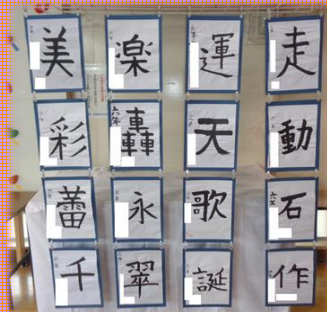 美 楽 運 走
彩 轟 天 動
蕾 永 歌 石
千 翠 誕 作